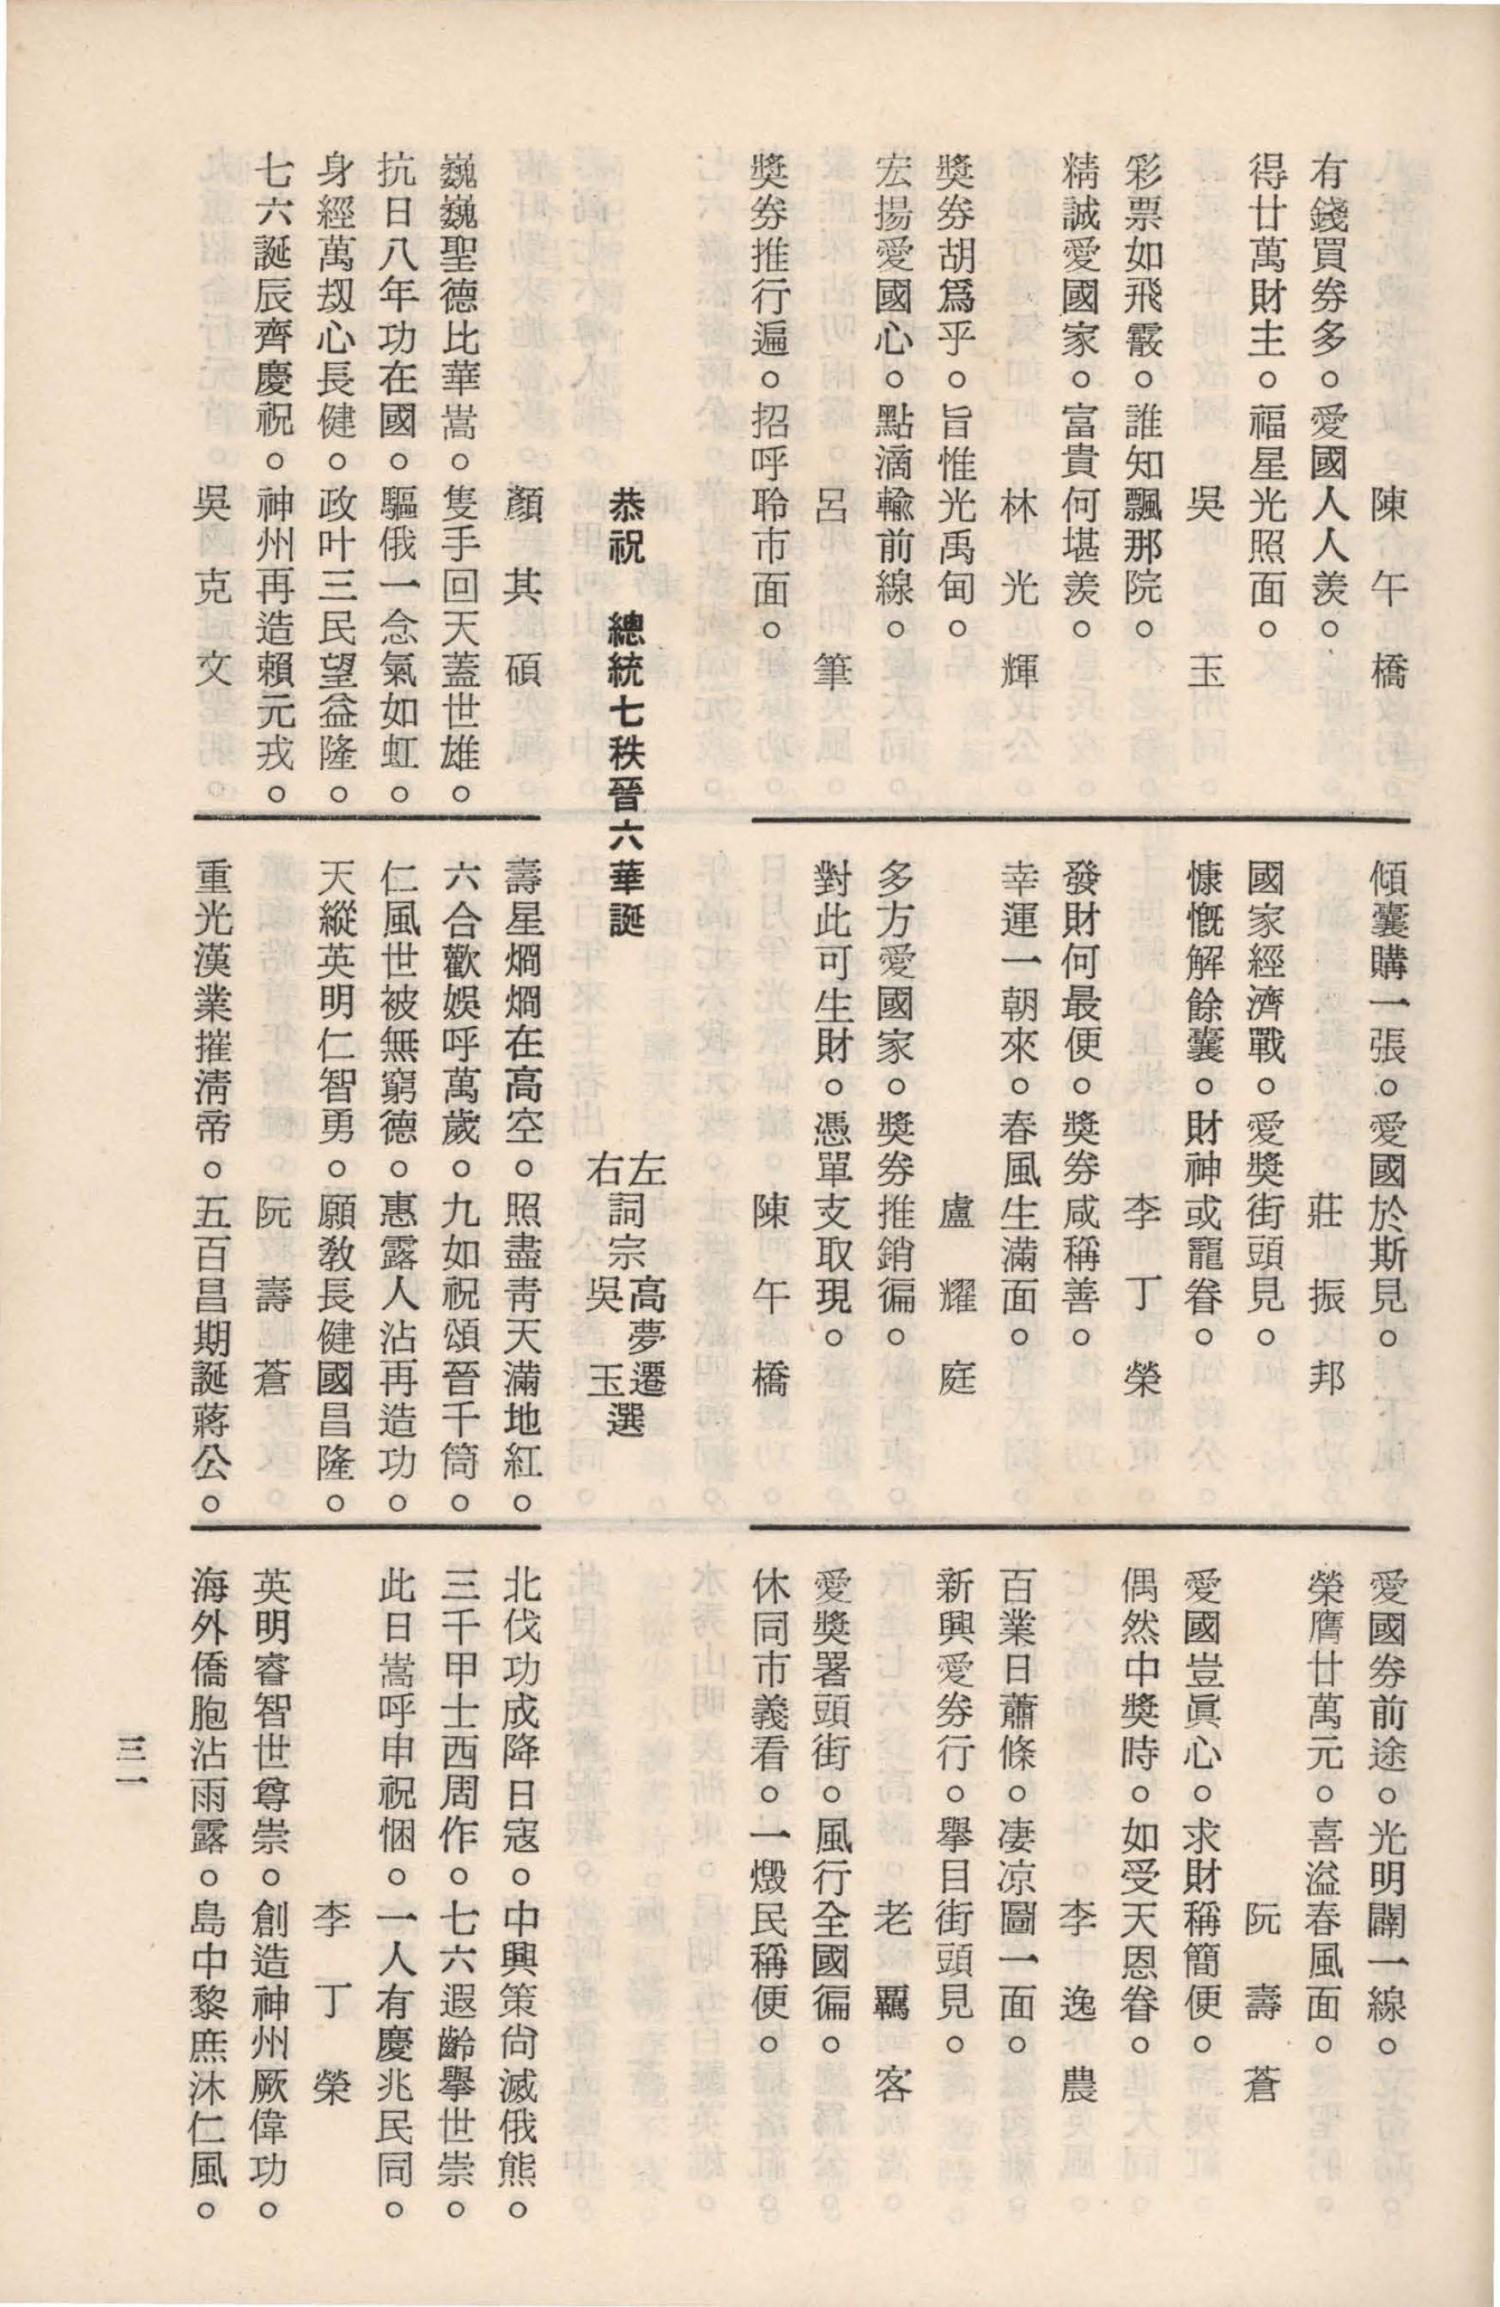 陳午橋
有錢買券多。愛國人人羨。
得廿萬財主。福星光照面。
吳玉
彩票如飛霰。誰知飄那院。
精誠愛國家。富貴何堪羨。
林光輝
獎券胡爲乎。旨惟光禹甸。
宏揚愛國心。點滴輸前線。
呂筆
獎券推行遍。招呼聆市面。
傾囊購一張。愛國於斯見。
莊振邦
國家經濟戰。愛獎街頭見。
慷慨解餘囊。財神或寵眷。
李丁榮
發財何最便。獎券咸稱善。
幸運一朝來。春風生滿面。
盧耀庭
多方愛國家。獎券推銷徧。
對此可生財。憑單支取現。
陳午橋
愛國券前途。光明闢一線。
榮膺廿萬元。喜溢春風面。
阮壽蒼
愛國豈眞心。求財稱簡便。
偶然中獎時。如受天恩眷。
李逸農
百業日蕭條。凄凉圖一面。
新興愛券行。舉目街頭見。
老覊客
愛獎署頭街。風行全國徧。
休同市義看。一燬民稱便。
恭祝 總統七秩晉六華誕
左右詞宗高夢遷吳玉選
顏其碩
巍巍聖德比華嵩。隻手回天蓋世雄。
抗日八年功在國。驅俄一念氣如虹。
身經萬刼心長健。政叶三民望益隆。
七六誕辰齊慶祝。神州再造賴元戎。
吳克文
壽星烱烱在高空。照盡靑天滿地紅。
六合歡娛呼萬歲。九如祝頌晉千筒。
仁風世被無窮德。惠露人沾再造功。
天縱英明仁智勇。願敎長健國昌隆。
阮壽蒼
重光漢業摧淸帝。五百昌期誕蔣公。
北伐功成降日寇。中興策尙滅俄熊。
三千甲士西周作。七六遐齡擧世崇。
此日嵩呼申祝悃。一人有慶兆民同。
李丁榮
英明睿智世尊崇。創造神州厥偉功。
海外僑胞沾雨露。島中黎庶沐仁風。
三一